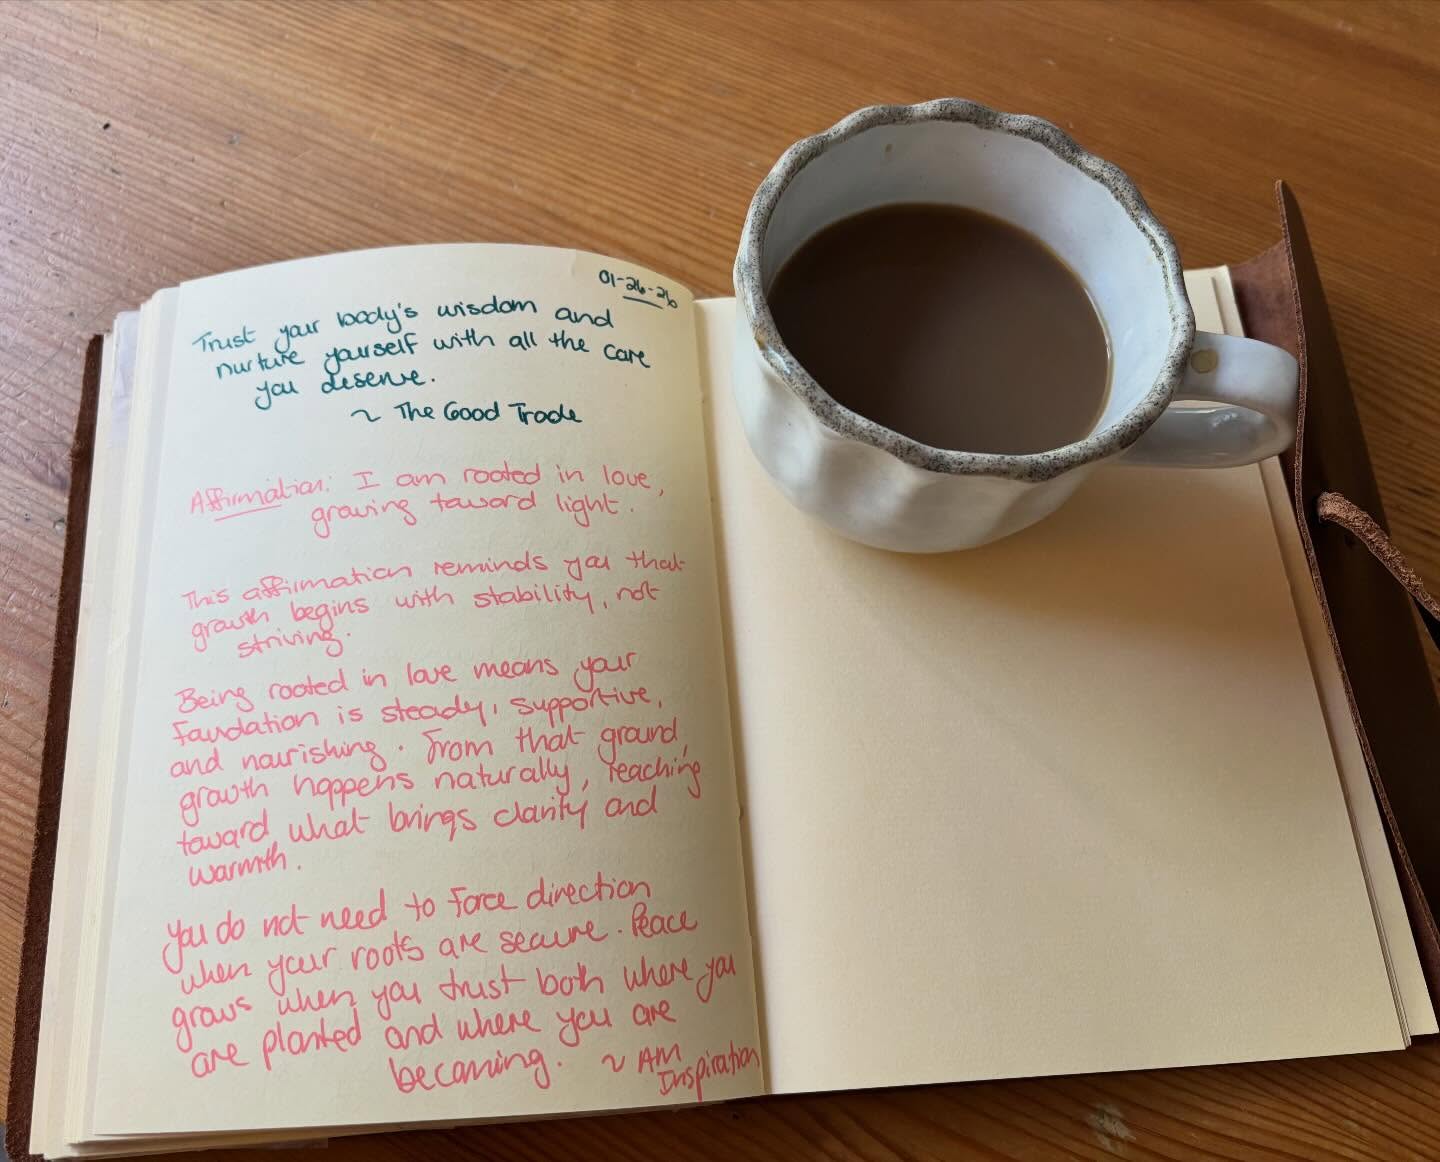 01-26-26
Trust your body's wisdom and
nurture yourself with all the care
you deserve.
~ The Good Trade
Affirmation: I am rooted in love,
growing toward light.
This affirmation reminds you that
growth begins with stability, not
striving.
Being rooted in love means your
foundation is steady, supportive,
and nourishing. From that ground,
growth happens naturally, reaching
toward what brings clarity and
warmth.
You do not need to force direction
when your roots are secure. Peace
grows when you trust both where you
are planted and where you are
becoming. ~ AM
Inspiration